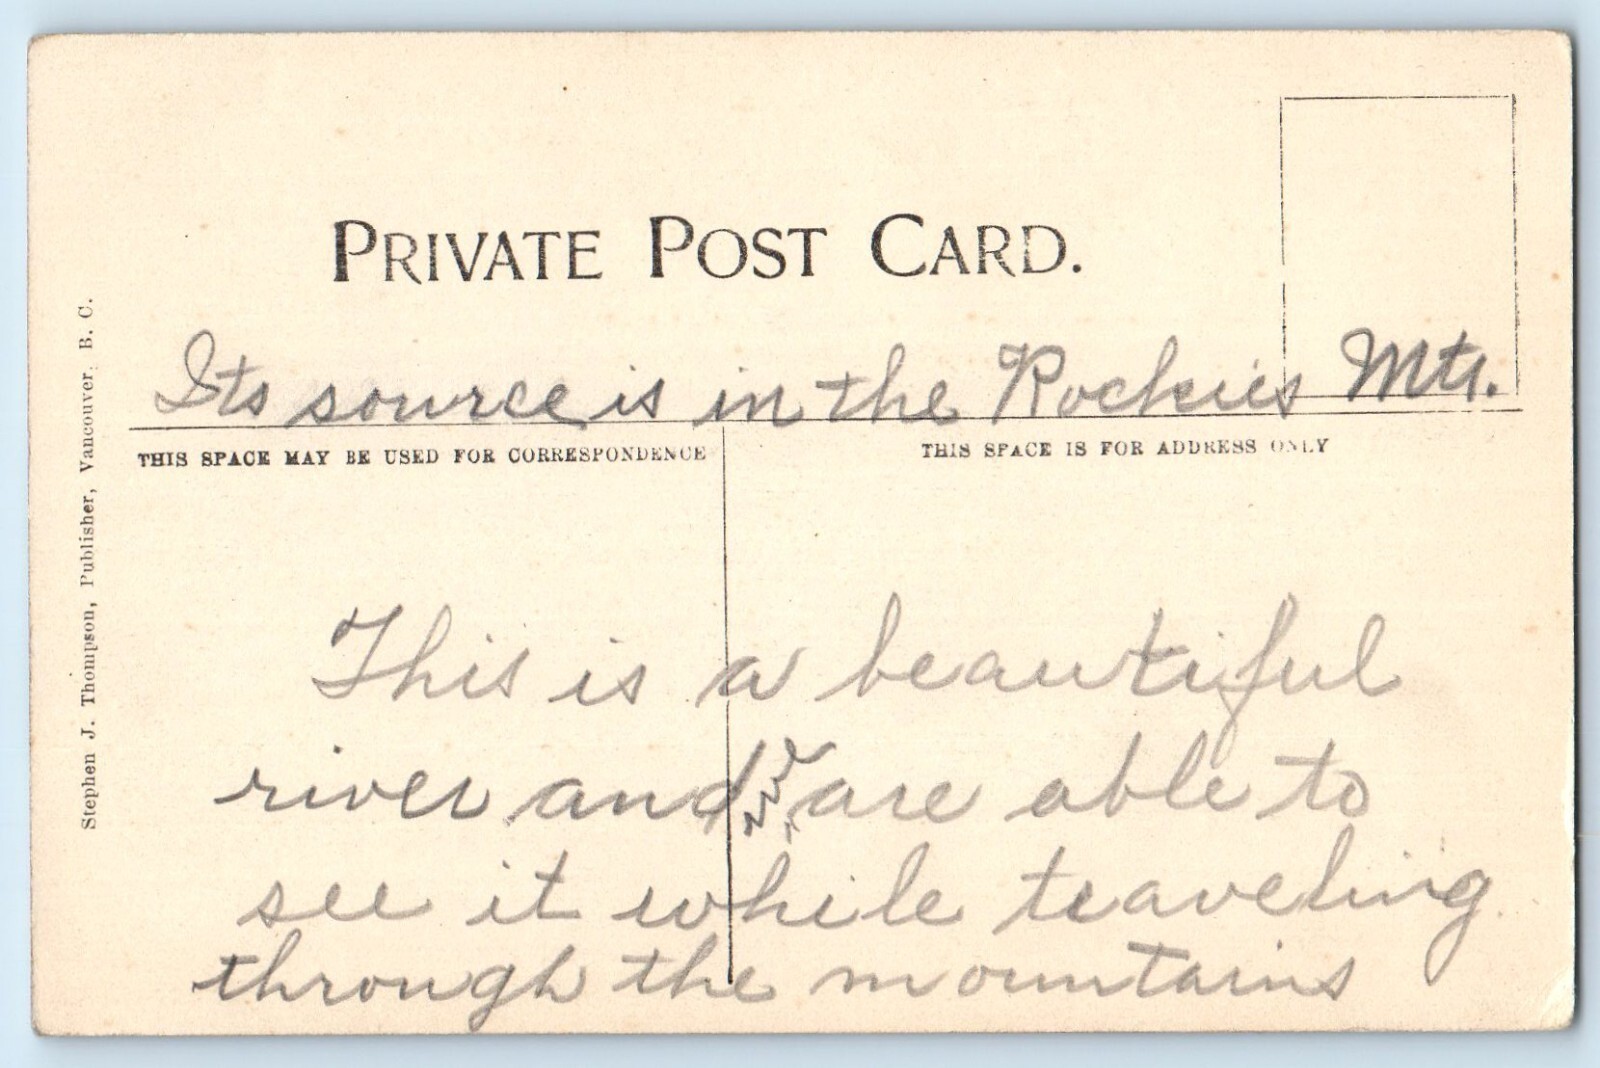 PRIVATE POST CARD.
Its source is in the Rockies Mts.
THIS SPACE MAY BE USED FOR CORRESPONDENCE
THIS SPACE IS FOR ADDRESS ONLY
This is a beautiful
river and we are able to
see it while traveling
through the mountains
Stephen J. Thompson, Publisher, Vancouver, B. C.